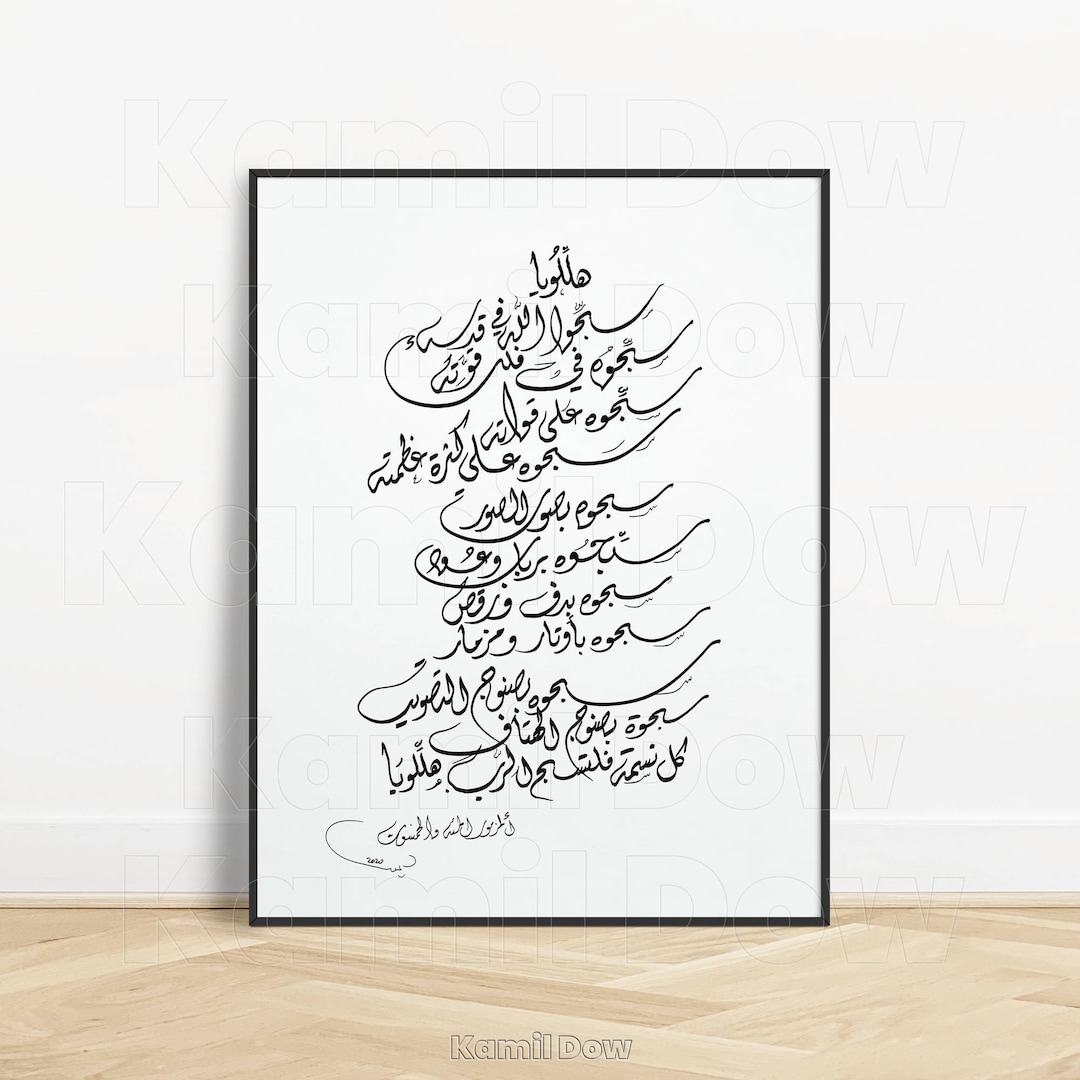 Kamil Dow
هلِّلُويا
سبِّحوا الله في قدسه
سبِّحوُه في فلك قوّته
سبِّحوه على قواته
سبحوه على كثرة عظمته
سبحوه بصوت الصور
سبِّحوه برباب وعُود
سبحوه بدف ورقص
سبحوه بأوتار ومزمار
سبحوه بصنوج التصويت
سبحوة بصنوج الهتاف
كل نسمة فلتسبح الرَّب هلِّلُويَا
ألمزمور المئة والخمسون
2020
Kamil Dow